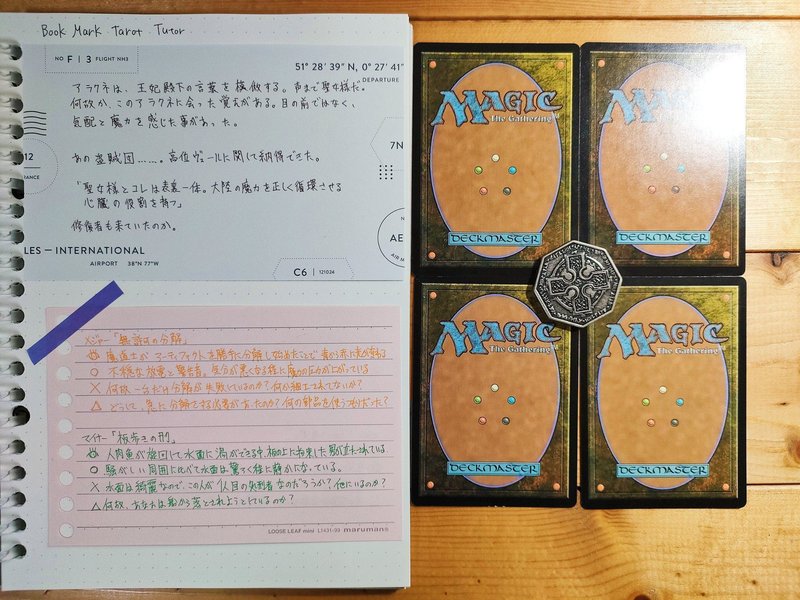 Book Mark Tarot Tutor
NO F | 3 FLIGHT NH3
51° 28' 39" N, 0° 27' 41"
DEPARTURE
アラクネは、王妃殿下の言葉を模倣する。声まで聖女様だ。
何故か、このアラクネに会った覚えがある。目の前ではなく、
気配と魔力を感じた事があった。
12
RANCE
7N
あの盗賊団……。高位ヴェールに関して納得できた。
「聖女様とコレは表裏一体。大陸の魔力を正しく循環させる
心臓の役割を持つ」
修復者も来ていたのか。
LES — INTERNATIONAL
AIRPORT 38°N 77°W
AE
C6 | 121024
メジャー「無許可の分解」
魔道士がアーティファクトを勝手に分解し始めたことで青から赤に光が変わる
○ 不穏な放電と警告音。気分が悪くなる程に魔力の圧力が上がっている
× 何故一台だけ分解が失敗しているのか?何か細工されてないか?
△ どうして、急に分解をする必要があったのか?何の部品を使うつもりだった?
マイナー「板歩きの刑」
人肉魚が旋回して水面に渦ができる中、板の上に拘束した男が立たされている
○ 騒がしい周囲に比べて水面は驚く程に静かになっている。
× 水面は綺麗なので、この人が1人目の処刑者なのだろうか?他にいるのか?
△ 何故、あなたは船から落とされようとしているのか?
LOOSE LEAF mini L1431-99 maruman
MAGIC
The Gathering
DECKMASTER
MAGIC
The Gathering
DECKMASTER
MAGIC
The Gathering
DECKMASTER
MAGIC
The Gathering
DECKMASTER